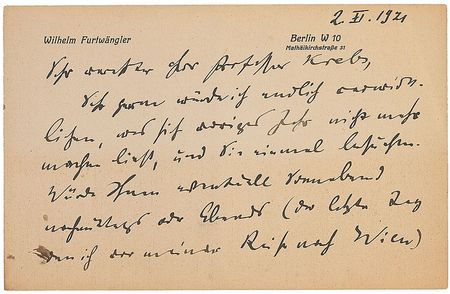 2. XI. 1921
Wilhelm Furtwängler
Berlin W 10
Mathäikirchstraße 31
Sehr verehrter Herr Professor Krebs,
Sehr gerne würde ich endlich verwirk-
lichen, was sich voriges Jahr nicht mehr
machen ließ, und Sie einmal besuchen.
Würde Ihnen eventuell Sonnabend
nachmittags oder Abends (der letzte Tag
den ich vor meiner Reise nach Wien)